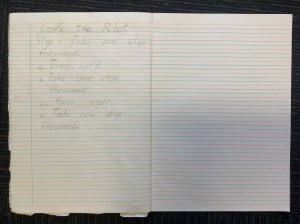 Code the Robot
Step 1 Take one step
forward
2 Turn left
3 Take one step
forward
4 turn right
5 Take one step
forward